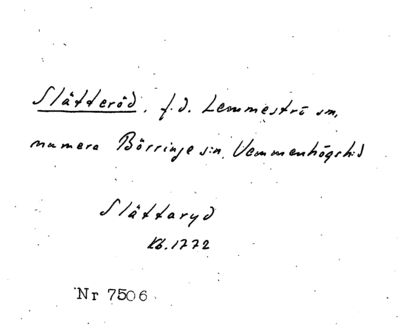 Slätteröd, f.d. Lemmeströ sn,
numera Börringe sn, Vemmenhögs hd
Slättaryd
Kb. 1772
Nr 7506